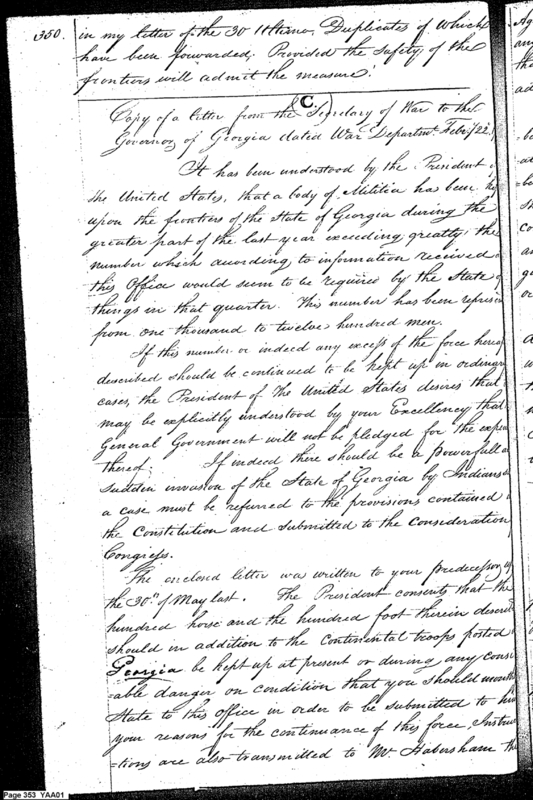 350.
in my letter of the 30 Ultimo, Duplicates of which
have been forwarded; Provided the safety of the
frontiers will admit the measure.
(C.)
Copy of a letter from the Secretary of War to the
Governor of Georgia dated War Departmt. Feby. 22
It has been understood by the President
the United States, that a body of Militia has been
upon the frontiers of the State of Georgia during the
greater part of the last year exceeding greatly the
number which according to information received
this Office would seem to be required by the State
things in that quarter. This number has been
from one thousand to twelve hundred men.
If this number or indeed any excess of the force
described should be continued to be kept up in
cases, the President of the United States desires that
may be explicitly understood by your Excellency that
General Government will not be pledged for the
thereof. If indeed there should be a powerfull
sudden invasion of the State of Georgia by Indians
a case must be referred to the provisions contained
the Constitution and submitted to the consideration
Congress.
The enclosed letter was written to your predecessor
the 30th of May last. The President consents that the
hundred horse and the hundred foot therein
should in addition to the Continental troops posted
Georgia be kept up at present or during any
=able danger on condition that you should
State to this office in order to be submitted to
your reasons for the continuance of this force,
=tions are also transmitted to Mr. Habersham
Page 353 YAA01